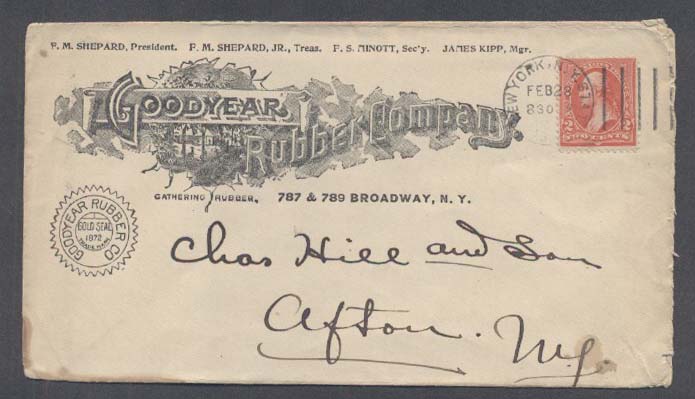 F. M. SHEPARD, President. F. M. SHEPARD, JR., Treas. F. S. MINOTT, Sec'y. JAMES KIPP, Mgr.
GOODYEAR
Rubber Company.
GATHERING RUBBER. 787 & 789 BROADWAY, N. Y.
NEW YORK, N.Y.
FEB 28
830
2 2
TWO CENTS
GOODYEAR RUBBER CO
GOLD SEAL
1872
TRADE MARK
Chas Hill and Son
Afton. N.Y.